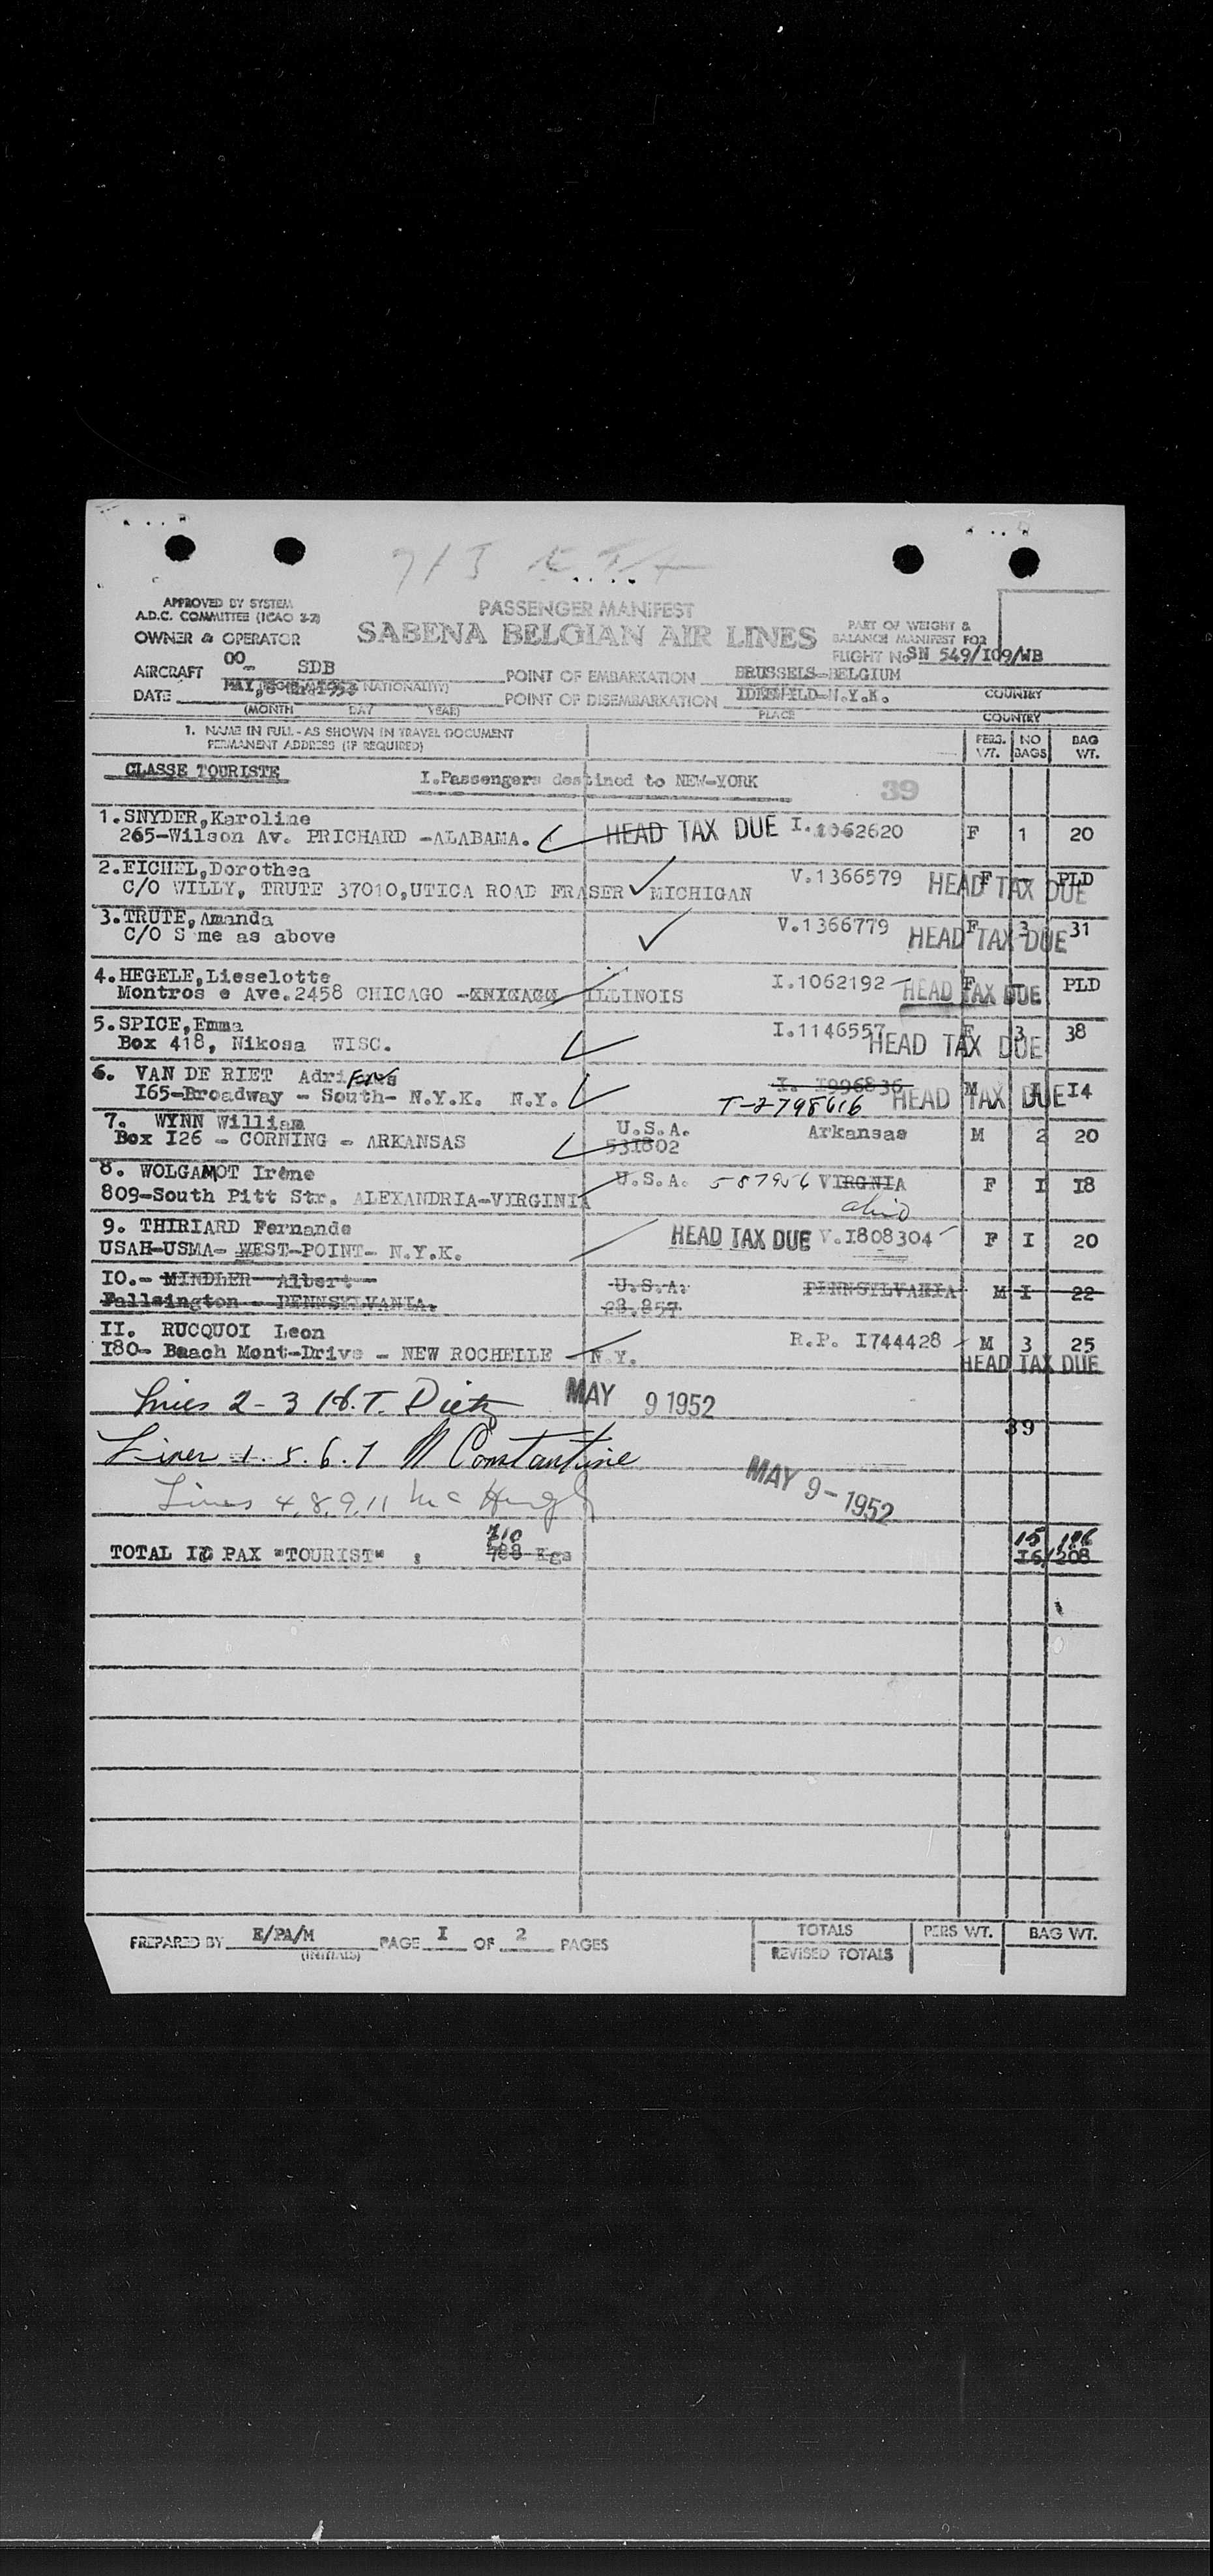 APPROVED BY SYSTEM
A.D.C. COMMITTEE (ICAO 3-2)
OWNER & OPERATOR
PASSENGER MANIFEST
SABENA BELGIAN AIR LINES
PART OF WEIGHT &
BALANCE MANIFEST FOR
FLIGHT No SN 549/I09/WB
AIRCRAFT OO- SDB POINT OF EMBARKATION BRUSSELS-BELGIUM
DATE MAY, NATIONALITY) POINT OF DISEMBARKATION N.Y.K. COUNTRY
(MONTH DAY YEAR) PLACE COUNTRY
1. NAME IN FULL - AS SHOWN IN TRAVEL DOCUMENT
PERMANENT ADDRESS (IF REQUIRED)
PERS. WT. NO BAGS BAG WT.
CLASSE TOURISTE I.Passengers destined to NEW-YORK 39
1.SNYDER,Karoline
265-Wilson Av. PRICHARD -ALABAMA. HEAD TAX DUE I.1062620 F 1 20
2.EICHEL,Dorothea V.1366579 F - PLD
C/O WILLY, TRUTE 37010,UTICA ROAD FRASER MICHIGAN HEAD TAX DUE
3.TRUTE,Amanda V.1366779 F 3 31
C/O S me as above HEAD TAX DUE
4.HEGELE,Lieselotte I.1062192 F PLD
Montros e Ave.2458 CHICAGO - ILLINOIS HEAD TAX DUE
5.SPICE,Emma I.1146557 F 3 38
Box 418, Nikosa WISC. HEAD TAX DUE
6. VAN DE RIET Adri I. I996836 M 1 I4
I65-Broadway - South- N.Y.K. N.Y. T-2798616 HEAD TAX DUE
7. WYNN William U.S.A. Arkansas M 2 20
Box I26 - CORNING - ARKANSAS 531802
8. WOLGAMOT Irène U.S.A. 587956 VIRGNIA F I I8
809-South Pitt Str. ALEXANDRIA-VIRGINIA Ohio
9. THIRIARD Fernande HEAD TAX DUE V.I808304 F I 20
USAH-USMA- WEST-POINT- N.Y.K.
IO.- MINDLER Albert U.S.A. PENNSYLVANIA M I 22
Fallsington - PENNSYLVANIA. 28.857
II. RUCQUOI Leon R.P. I744428 M 3 25
I80- Beach Mont-Drive - NEW ROCHELLE - N.Y. HEAD TAX DUE
Lines 2-3 H.T. Dietz MAY 9 1952
39
Lines 1. 5. 6. 7 M Constantine
MAY 9-1952
Lines 4,8,9,11 Mc Hugh
710 15 186
TOTAL IO PAX "TOURIST" : 788 Kgs I6/208
PREPARED BY E/PA/M PAGE I OF 2 PAGES
(INITIALS)
TOTALS PERS WT. BAG WT.
REVISED TOTALS